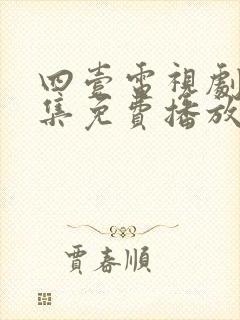 四壹電視劇
集免費播放
賈春順